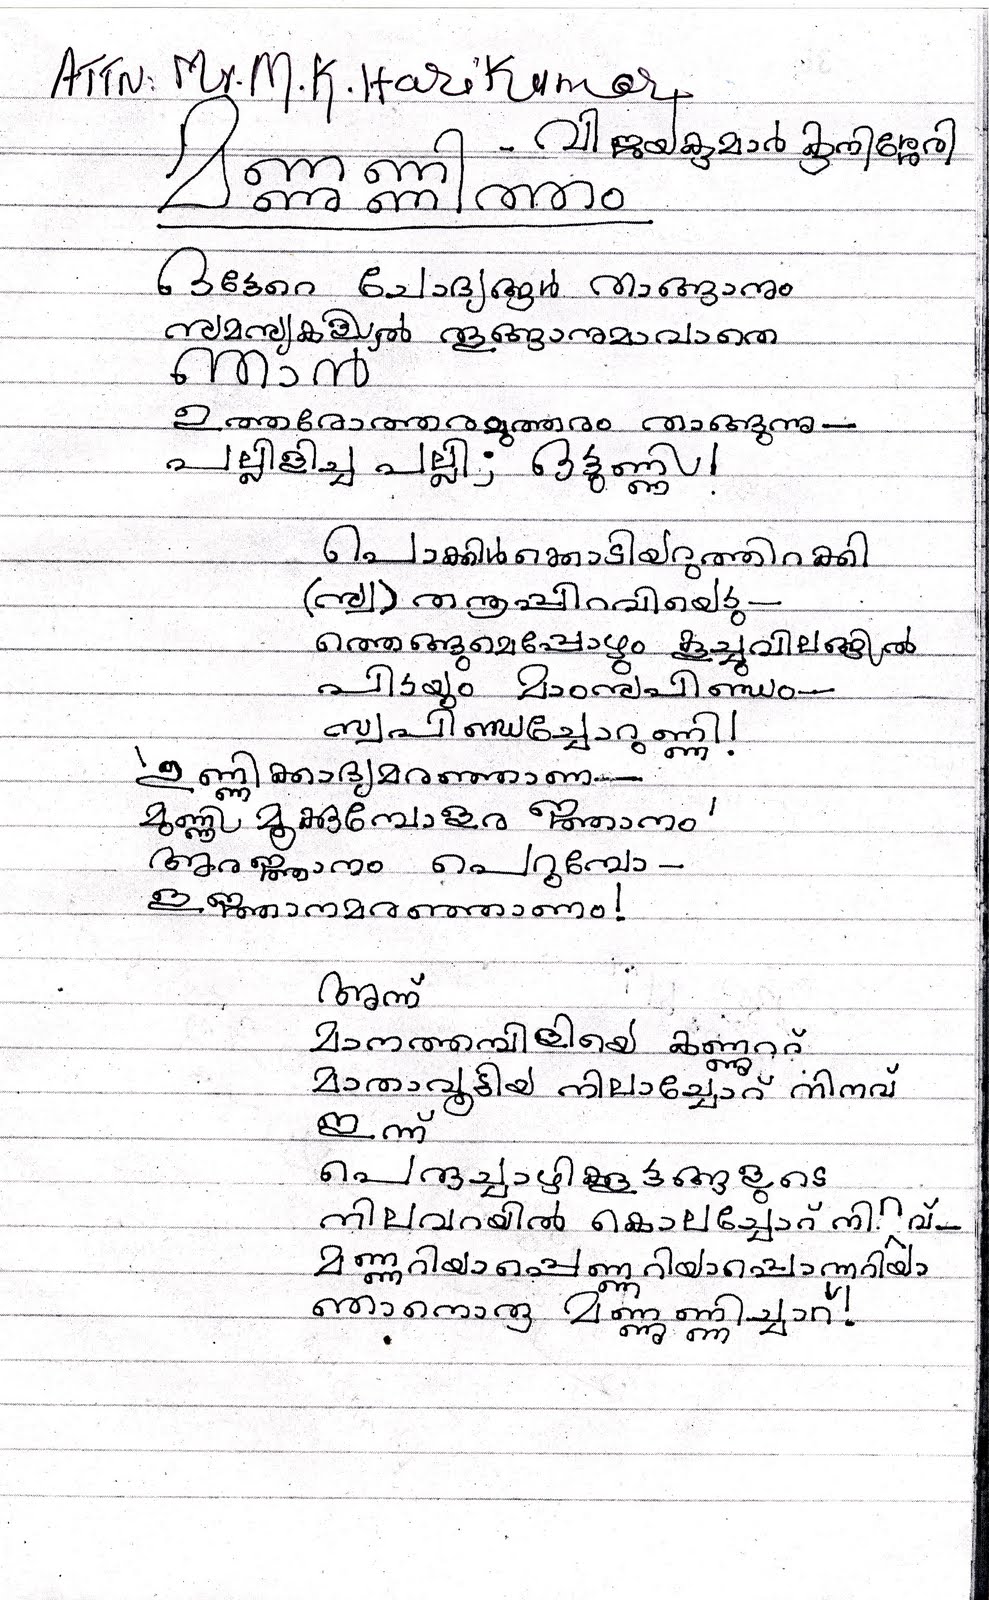 ATTN: Mr. M. K. Harikumar
- വിജയകുമാർ കുനിശ്ശേരി
മണ്ണുണ്ണിത്തം
ഒട്ടേറെ ചോദ്യങ്ങൾ താങ്ങാനും
സമസ്യകളിൽ തൂങ്ങാനുമാവാതെ
ഞാൻ
ഉത്തരോത്തരമുത്തരം താങ്ങുന്നു—
പല്ലിളിച്ച പല്ലി; ഒട്ടുണ്ണി!
പൊക്കിൾക്കൊടിയറുത്തിറക്കി
(സ്വ) തന്ത്രപ്പിറവിയെടു—
ത്തെങ്ങുമെപ്പോഴും കൂച്ചുവിലങ്ങിൽ
പിടയും മാംസപിണ്ഡം—
സ്വപിണ്ഡച്ചോറുണ്ണി!
'ഉണ്ണിക്കാദ്യമരഞ്ഞാണ—
മുണ്ണി മൂക്കുമ്പോളര ജ്ഞാനം'
അരജ്ഞാനം പെറുമ്പോ—
ഇജ്ഞാനമരഞ്ഞാണം!
അന്ന്
മാനത്തമ്പിളിയെ കണ്ണുററ്
മാതാവൂട്ടിയ നിലാച്ചോറ് നിനവ്
ഇന്ന്
പെരുച്ചാഴിക്കൂട്ടങ്ങളുടെ
നിലവറയിൽ കൊലച്ചോറ് നിറവ്—
മണ്ണറിയാപ്പെണ്ണറിയാപ്പൊന്നറിയാ
ഞാനൊരു മണ്ണുണ്ണിച്ചാറ്!